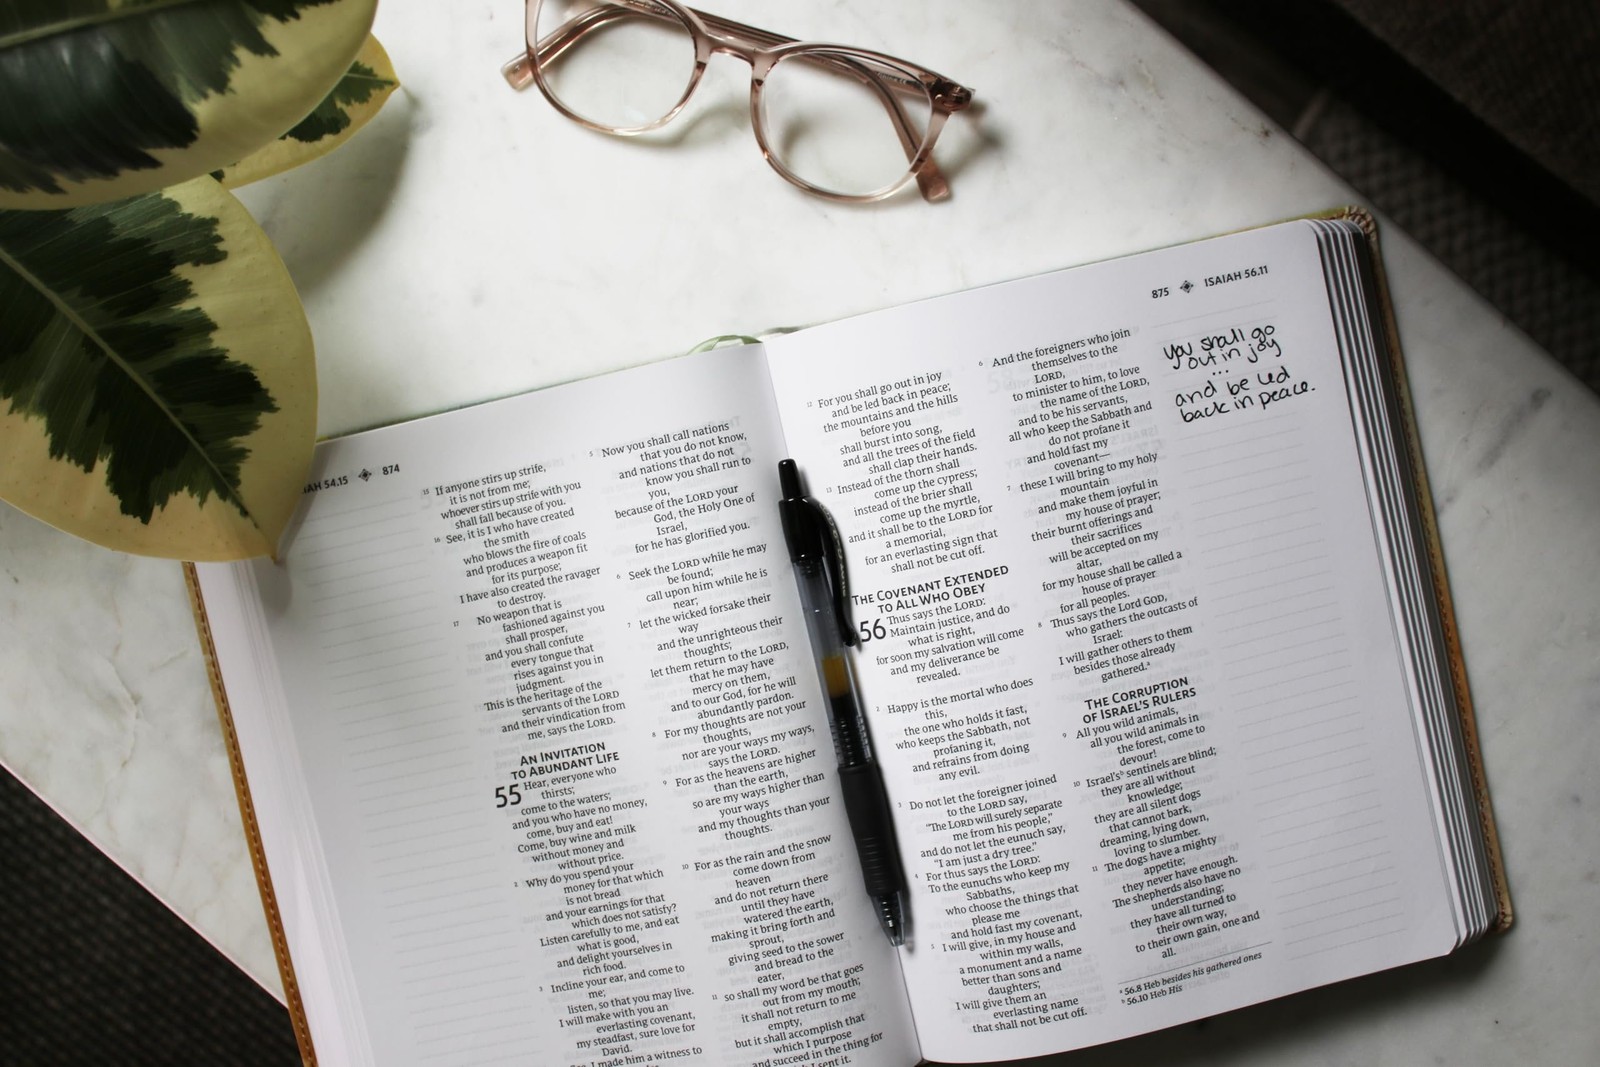 54.15 874
15 If anyone stirs up strife,
it is not from me;
whoever stirs up strife with you
shall fall because of you.
16 See, it is I who have created
the smith
who blows the fire of coals
and produces a weapon fit
for its purpose;
I have also created the ravager
to destroy.
17 No weapon that is
fashioned against you
shall prosper,
and you shall confute
every tongue that
rises against you in
judgment.
This is the heritage of the
servants of the LORD
and their vindication from
me, says the LORD.
AN INVITATION
TO ABUNDANT LIFE
55 Hear, everyone who
thirsts;
come to the waters;
and you who have no money,
come, buy and eat!
Come, buy wine and milk
without money and
without price.
2 Why do you spend your
money for that which
is not bread
and your earnings for that
which does not satisfy?
Listen carefully to me, and eat
what is good,
and delight yourselves in
rich food.
3 Incline your ear, and come to
me;
listen, so that you may live.
I will make with you an
everlasting covenant,
my steadfast, sure love for
David.
I made him a witness to
5 Now you shall call nations
that you do not know,
and nations that do not
know you shall run to
you,
because of the LORD your
God, the Holy One of
Israel,
for he has glorified you.
6 Seek the LORD while he may
be found;
call upon him while he is
near;
7 let the wicked forsake their
way
and the unrighteous their
thoughts;
let them return to the LORD,
that he may have
mercy on them,
and to our God, for he will
abundantly pardon.
8 For my thoughts are not your
thoughts,
nor are your ways my ways,
says the LORD.
9 For as the heavens are higher
than the earth,
so are my ways higher than
your ways
and my thoughts than your
thoughts.
10 For as the rain and the snow
come down from
heaven
and do not return there
until they have
watered the earth,
making it bring forth and
sprout,
giving seed to the sower
and bread to the
eater,
11 so shall my word be that goes
out from my mouth;
it shall not return to me
empty,
but it shall accomplish that
which I purpose
and succeed in the thing for
I sent it.
875 ISAIAH 56.11
12 For you shall go out in joy
and be led back in peace;
the mountains and the hills
before you
shall burst into song,
and all the trees of the field
shall clap their hands.
13 Instead of the thorn shall
come up the cypress;
instead of the brier shall
come up the myrtle,
and it shall be to the LORD for
a memorial,
for an everlasting sign that
shall not be cut off.
THE COVENANT EXTENDED
TO ALL WHO OBEY
56 Thus says the LORD:
Maintain justice, and do
what is right,
for soon my salvation will come
and my deliverance be
revealed.
2 Happy is the mortal who does
this,
the one who holds it fast,
who keeps the Sabbath, not
profaning it,
and refrains from doing
any evil.
3 Do not let the foreigner joined
to the LORD say,
"The LORD will surely separate
me from his people,"
and do not let the eunuch say,
"I am just a dry tree."
4 For thus says the LORD:
To the eunuchs who keep my
Sabbaths,
who choose the things that
please me
and hold fast my covenant,
5 I will give, in my house and
within my walls,
a monument and a name
better than sons and
daughters;
I will give them an
everlasting name
that shall not be cut off.
6 And the foreigners who join
themselves to the
LORD,
to minister to him, to love
the name of the LORD,
and to be his servants,
all who keep the Sabbath and
do not profane it
and hold fast my
covenant—
7 these I will bring to my holy
mountain
and make them joyful in
my house of prayer;
their burnt offerings and
their sacrifices
will be accepted on my
altar,
for my house shall be called a
house of prayer
for all peoples.
8 Thus says the Lord GOD,
who gathers the outcasts of
Israel:
I will gather others to them
besides those already
gathered.a
THE CORRUPTION
OF ISRAEL'S RULERS
9 All you wild animals,
all you wild animals in
the forest, come to
devour!
10 Israel'sb sentinels are blind;
they are all without
knowledge;
they are all silent dogs
that cannot bark,
dreaming, lying down,
loving to slumber.
11 The dogs have a mighty
appetite;
they never have enough.
The shepherds also have no
understanding;
they have all turned to
their own way,
to their own gain, one and
all.
a 56.8 Heb besides his gathered ones
b 56.10 Heb His
you shall go
out in joy
...
and be led
back in peace.